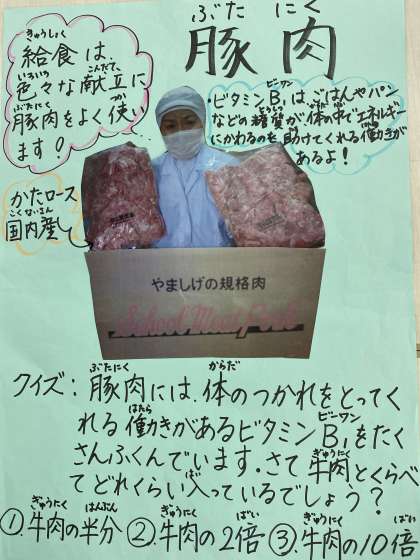 ぶた にく
豚肉
きゅうしょく
給食は、
いろいろ こんだて
色々な献立に
ぶたにく つか
豚肉をよく使い
ます！
ビーワン
・ビタミンB₁は、ごはんやパン
とうしつ からだ なか
などの糖質が体の中でエネルギー
たす はたら
にかわるのを助けてくれる働きが
あるよ！
かたロース
こくないさん
国内産
やましげの規格肉
School Meat Pork
ぶたにく からだ
クイズ：豚肉には、体のつかれをとってく
はたら ビーワン
れる働きがあるビタミンB₁をたく
ぎゅうにく
さんふくんでいます。さて牛肉とくらべ
はい
てどれくらい入っているでしょう？
ぎゅうにく はんぶん ぎゅうにく ばい ぎゅうにく ばい
①.牛肉の半分 ②.牛肉の2倍 ③.牛肉の10倍